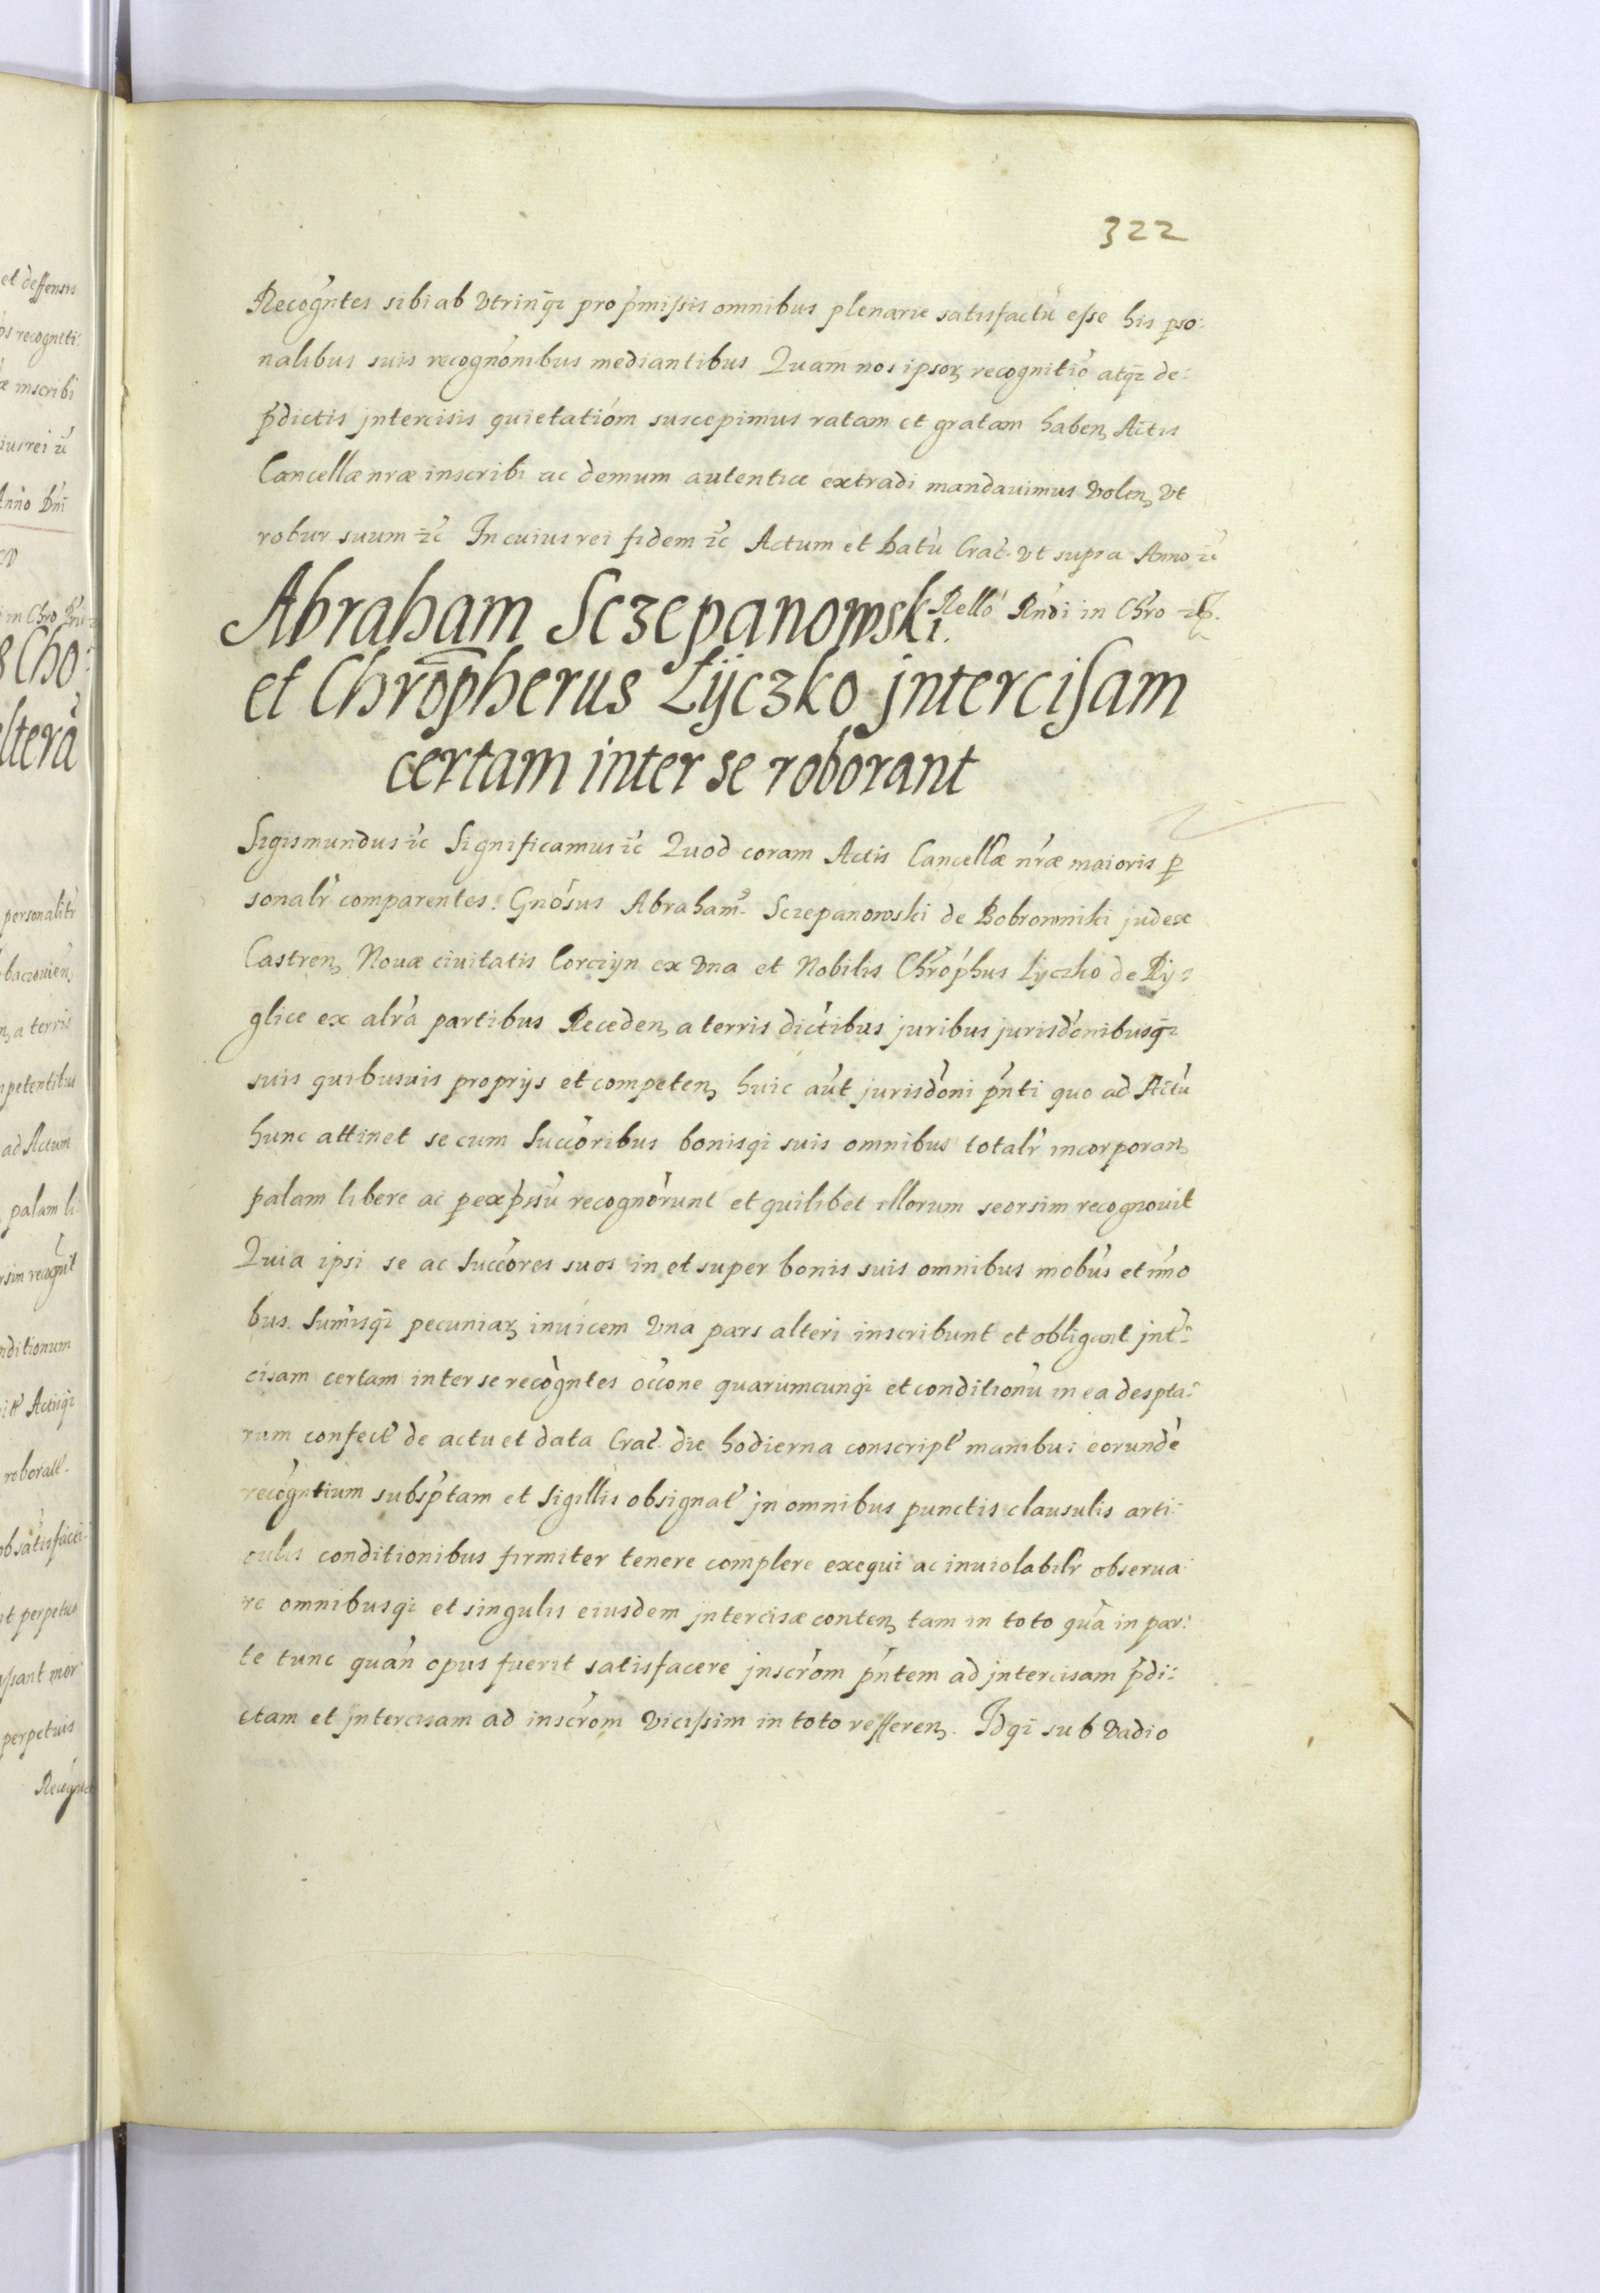 322
Recogñtes sibi ab vtrinq̃ pro p̃missis omnibus plenarie satisfactũ esse his pso:
nalibus suis recognõnibus mediantibus Quam nos ipsoꝝ recognitiõ atq̃ de:
p̃dictis jntercisis quietatiõm suscepimus ratam et gratam haben Actis
Cancellæ nr̃æ inscribi ac demum autentice extradi mandauimus volen vt
robur suum ꝛc̃ In cuius rei fidem ꝛc̃ Actum et Datũ Crac̃. vt supra Anno ꝛc̃
Abraham Sczepanowski. Rello Rñdi in Chr̃o
et Chrõpherus Lÿczko jntercisam
certam inter se roborant
Sigismundus ꝛc̃ Significamus ꝛc̃ Quod coram Actis Cancellæ nr̃æ maioris p
sonalr̃ comparentes. Gnõsus Abraham Sczepanowski de Bobrowniki judex
Castren Nouæ ciuitatis Corczÿn ex vna et Nobilis Chr̃ophus Lÿczko de Rÿ:
glice ex altr̃a partibus Receden a terris dictibus juribus jurisdõnibusq̃
suis quibusuis proprijs et competen huic aũt jurisdõni p̃nti quo ad Actũ
hunc attinet se cum succõribus bonisq̃ suis omnibus totalr̃ incorporan
palam libere ac p exp̃ssũ recognõrunt et quilibet illorum seorsim recognouit
Quia ipsi se ac succõres suos in et super bonis suis omnibus mobũs et ĩmo
bus. sum̃isq̃ pecuniaꝝ inuicem vna pars alteri inscribunt et obligant jnt̃:
cisam certam inter se recogñtes occ̃one quarumcunq̃ et conditionũ in ea despta:
rum confect̃ de actu et data Crac̃. die hodierna conscript̃ manibus eorundẽ
recogñtium subsp̃tam et sigillis obsignat̃ jn omnibus punctis clausulis arti:
culis conditionibus firmiter tenere complere exequi ac inuiolabilr̃ obserua
re omnibusq̃ et singulis eiusdem jntercisæ conten tam in toto quã in par:
te tunc quãn opus fuerit satisfacere jnscr̃om p̃ntem ad jntercisam p̃di:
ctam et jntercisam ad inscr̃om vicissim in toto refferen. Idq̃ sub vadio